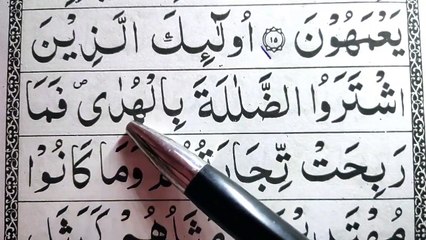 يَعْمَهُوْنَ ۝١٥ اُولٰٓئِكَ الَّذِيْنَ
اشْتَرَوُا الضَّلٰلَةَ بِالْهُدٰى ۪ فَمَا
رَبِحَتْ تِّجَارَتُهُمْ وَمَا كَانُوْا
كَمَثَلِ